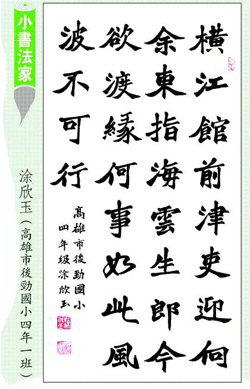 橫江館前津吏迎向
余東指海雲生郎今
欲渡緣何事如此風
波不可行
高雄市後勁國小
四年級涂欣玉
小書法家
涂欣玉（高雄市後勁國小四年一班）